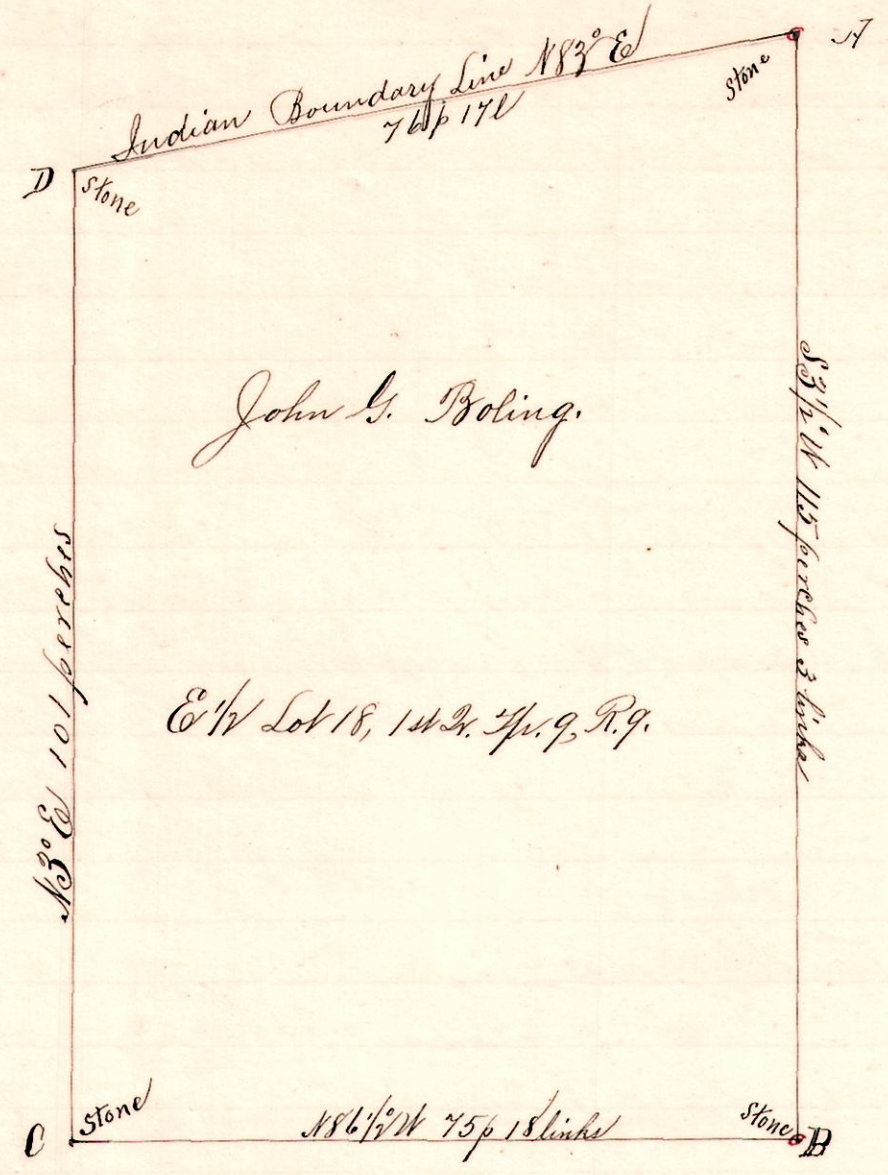 Indian Boundary Line N83° E
76p 17l
A
Stone
D
Stone
John G. Boling.
S 3 1/2° W 115 perches 3 links
N3° E 101 perches
E 1/2 Lot 18, 1st Qr. Tp. 9, R. 9.
C
Stone
N86 1/2° W 75p 18 links
Stone
B